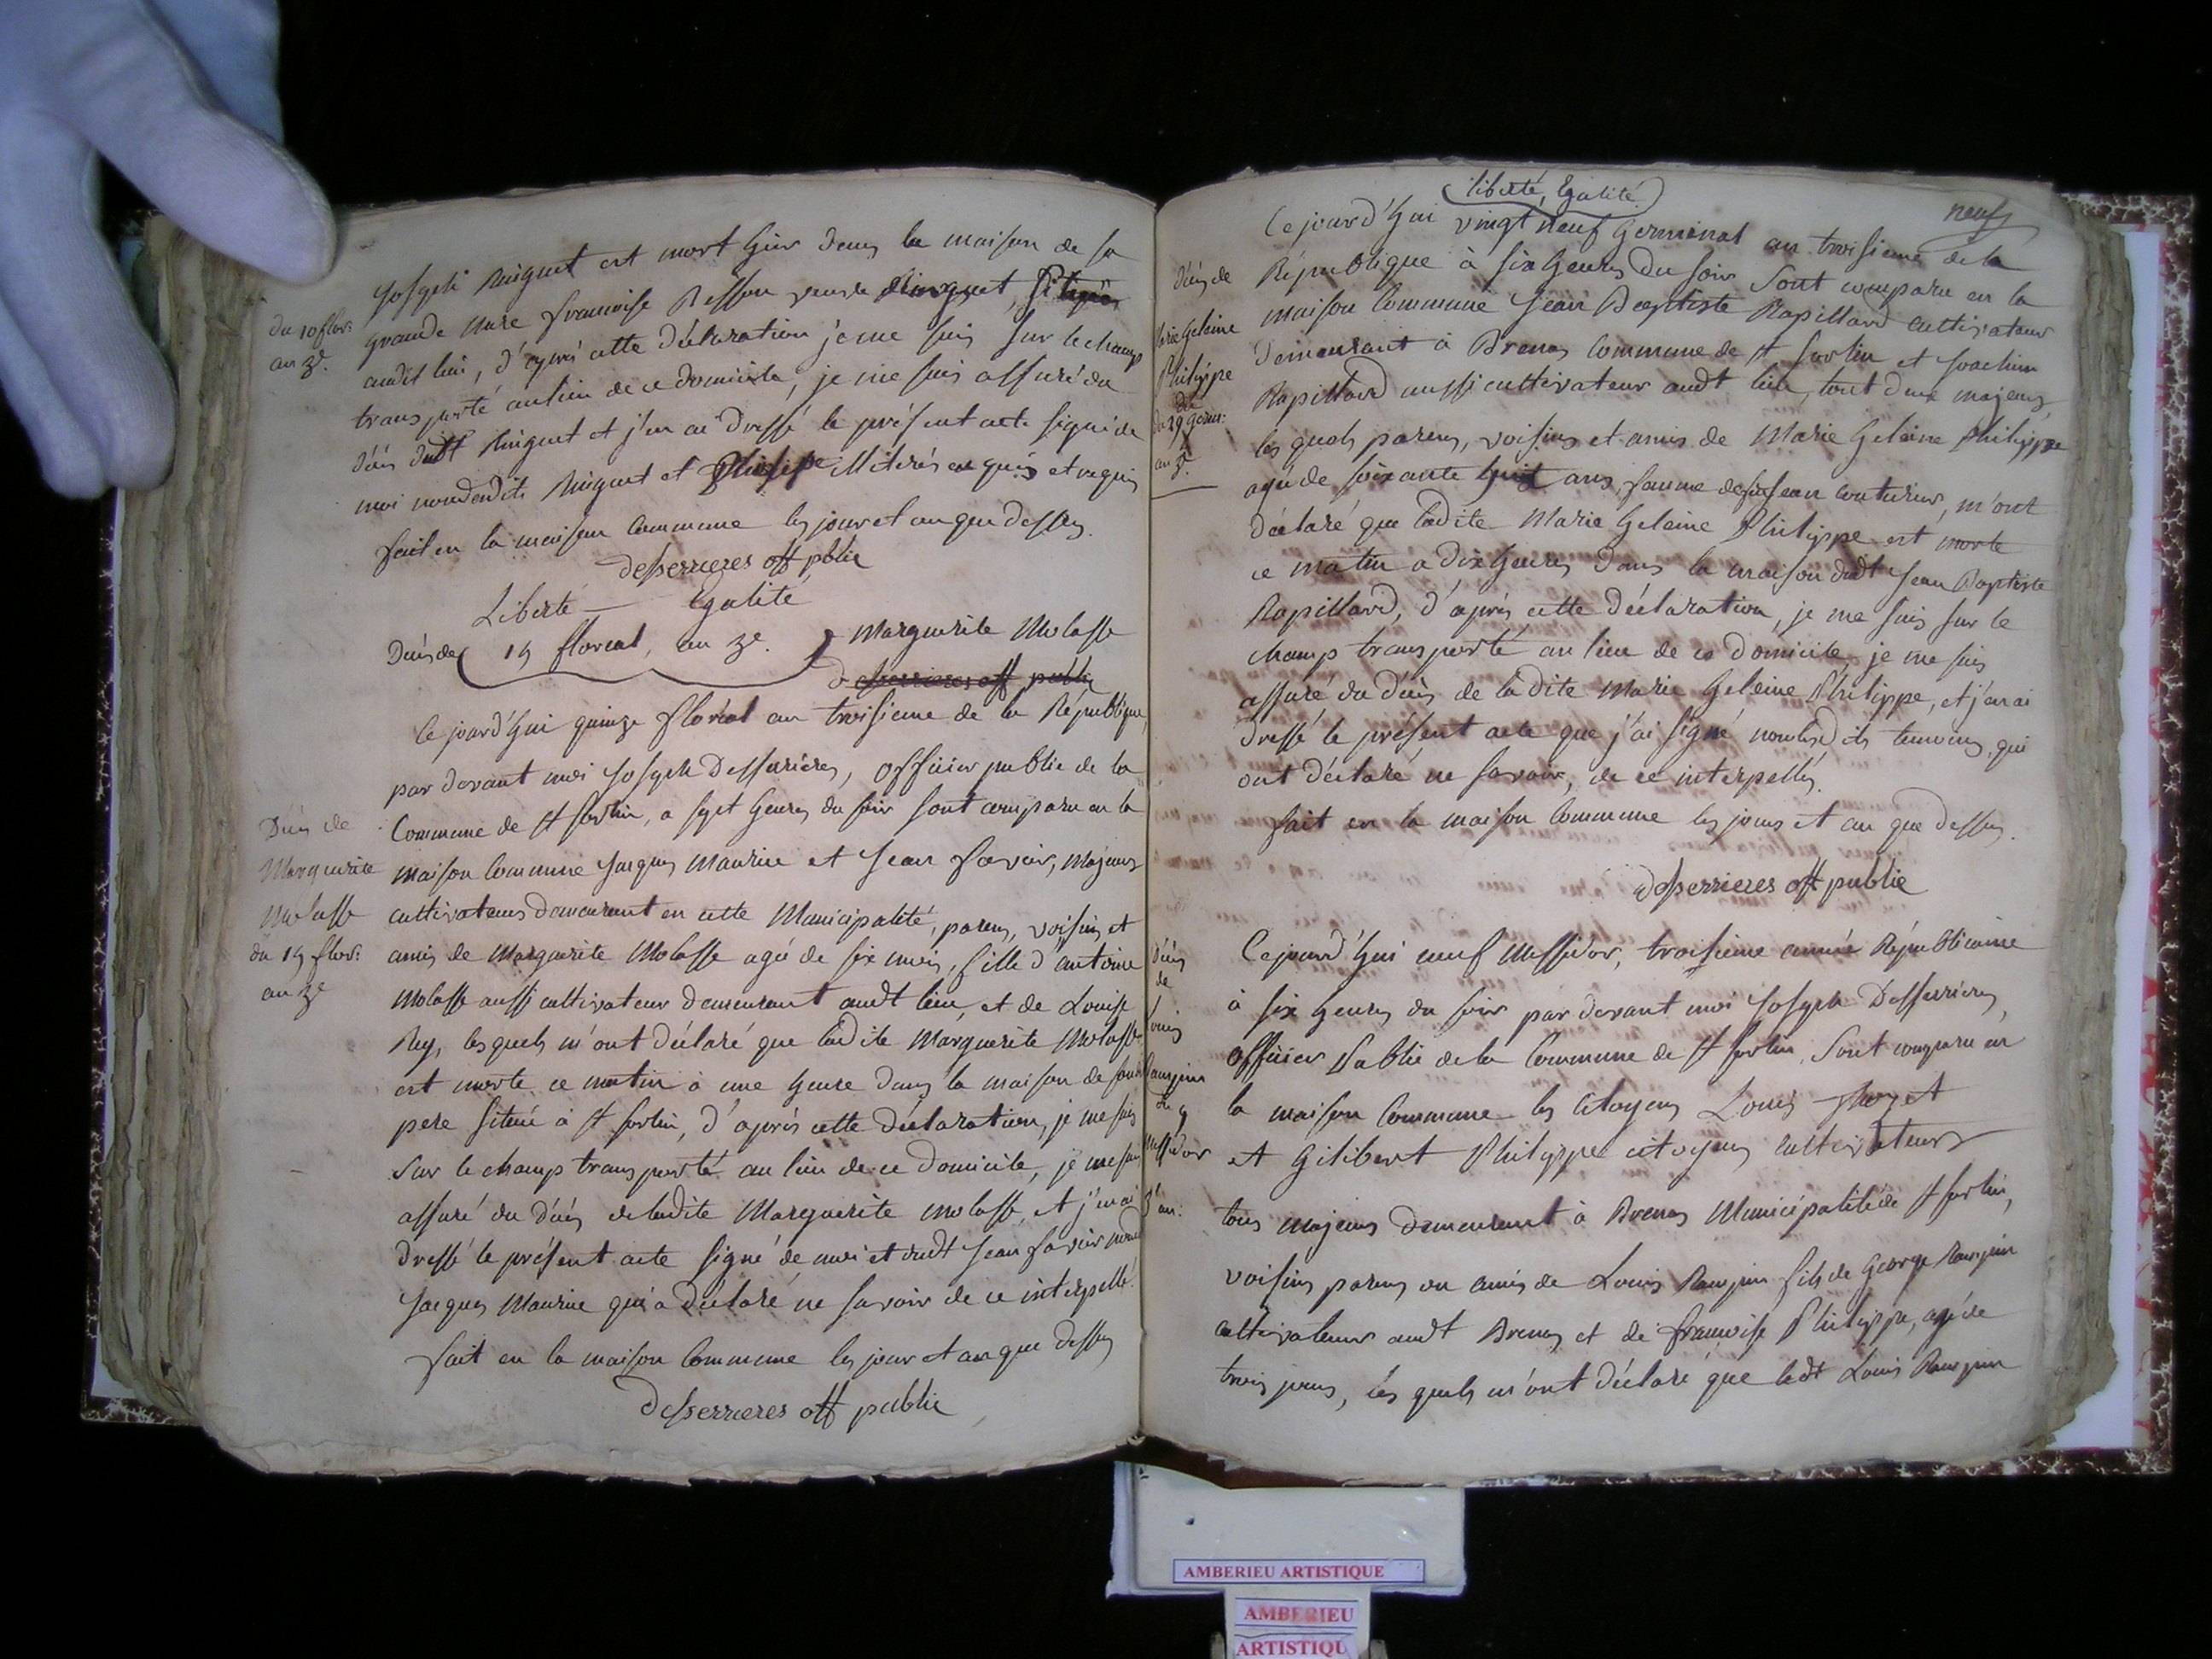 du 10 flor:
an 3e.
Joseph Ruiguet est mort hier dans la maison de sa
grande mere francoise Besson veuve Ruiguet, située
audit lieu, d'après cette déclaration je me suis sur le champ
transporté au lieu de ce domicile, je me suis assuré du
décès dudt Ruiguet et j'en ai dressé le présent acte signé de
moi nondesdits Ruiguet et Philippe illiterés enquis et requis
fait en la maison Commune les jour et an que dessus.
desserrieres off public
Liberté — Egalité
Décès de 15 floreal, an 3e. Marguerite Molasse
desserrieres off public
Décès de
Marguerite
Molasse
du 15 flor:
an 3e
Ce jourd'hui quinze floréal an troisieme de la République,
par devant moi Joseph Desserrieres, officier public de la
Commune de st sorlin, a sept heures du soir sont comparu en la
maison Commune Jacques Maurice et Jean Savoir, majeurs
cultivateurs demeurant en cette Municipalité, parens, voisins et
amis de Marguerite Molasse agée de six mois, fille d'antoine
Molasse aussi cultivateur demeurant audt lieu, et de Louise
Rey, lesquels m'ont déclaré que ladite Marguerite Molasse
est morte ce matin à une heure dans la maison de son
pere située à st sorlin, d'après cette déclaration, je me suis
sur le champ transporté au lieu de ce domicile, je me suis
assuré du décès de ladite Marguerite Molasse, et j'en ai
dressé le présent acte signé de moi et dudt Jean Savoir non
Jacques Maurice qui a déclaré ne savoir de ce interpellé.
fait en la maison Commune les jour et an que dessus
Desserrieres off public
liberté, Egalité
neuf
décès de
Marie Geleine
Philippe
du 29 germ:
an 3e.
Ce jourd'hui vingt neuf Germinal an troisieme de la
République à six heures du soir sont comparu en la
maison Commune Jean Baptiste Rapillard cultivateur
demeurant à Brenas Commune de st sorlin et Joachim
Rapillard aussi cultivateur audt lieu, tout deux majeurs,
lesquels parens, voisins et amis de Marie Geleine Philippe
agée de soixante huit ans, famme de feu Jean Couturier, m'ont
déclaré que ladite Marie Geleine Philippe est morte
ce matin a dix heures dans la maison dudt Jean Baptiste
Rapillard, d'après cette déclaration, je me suis sur le
champ transporté au lieu de ce domicile, je me suis
assuré du décès de ladite Marie Geleine Philippe, et j'en ai
dressé le présent acte que j'ai signé non lesdits temoins, qui
ont déclaré ne savoir, de ce interpellés.
fait en la maison Commune les jours et an que dessus.
desserrieres off public
décès
de
Louis
du 9
messidor
3e an:
Ce jourd'hui neuf Messidor, troisieme année Républicaine
à six heures du soir par devant moi Joseph Desserrieres,
officier Public de la Commune de st sorlin, sont comparu en
la maison Commune les Citoyens Louis
et Gilibert Philippe citoyens cultivateurs
tous majeurs demeurant à Brenas Municipalité de st sorlin,
voisins parens ou amis de Louis Ranjin fils de George Ranjin
cultivateur audt Brenas et de francoise Philippe, agé de
trois jours, lesquels m'ont déclaré que ledt Louis Ranjin
AMBERIEU ARTISTIQUE
AMBERIEU
ARTISTIQU